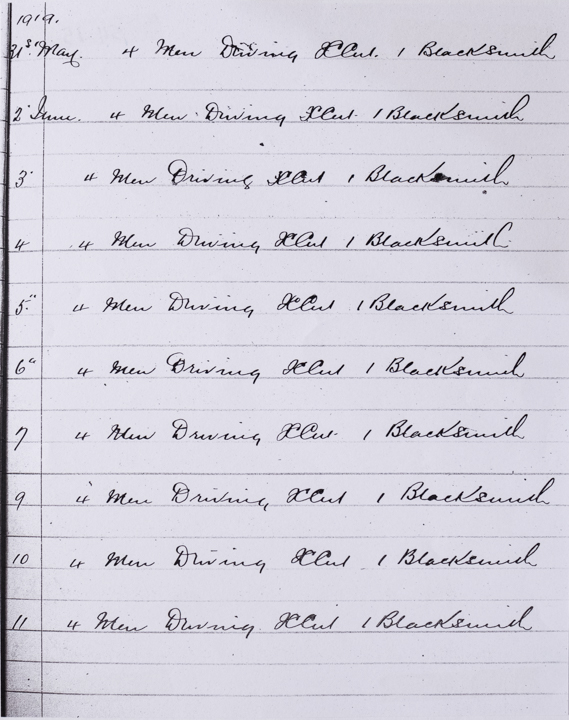 1919.
31st May. 4 Men Driving XCut. 1 Blacksmith
2 June. 4 Men Driving XCut 1 Blacksmith
3 4 Men Driving XCut 1 Blacksmith
4 4 Men Driving XCut 1 Blacksmith
5" 4 Men Driving XCut 1 Blacksmith
6" 4 Men Driving XCut 1 Blacksmith
7 4 Men Driving XCut 1 Blacksmith
9 4 Men Driving XCut 1 Blacksmith
10 4 Men Driving XCut 1 Blacksmith
11 4 Men Driving XCut 1 Blacksmith